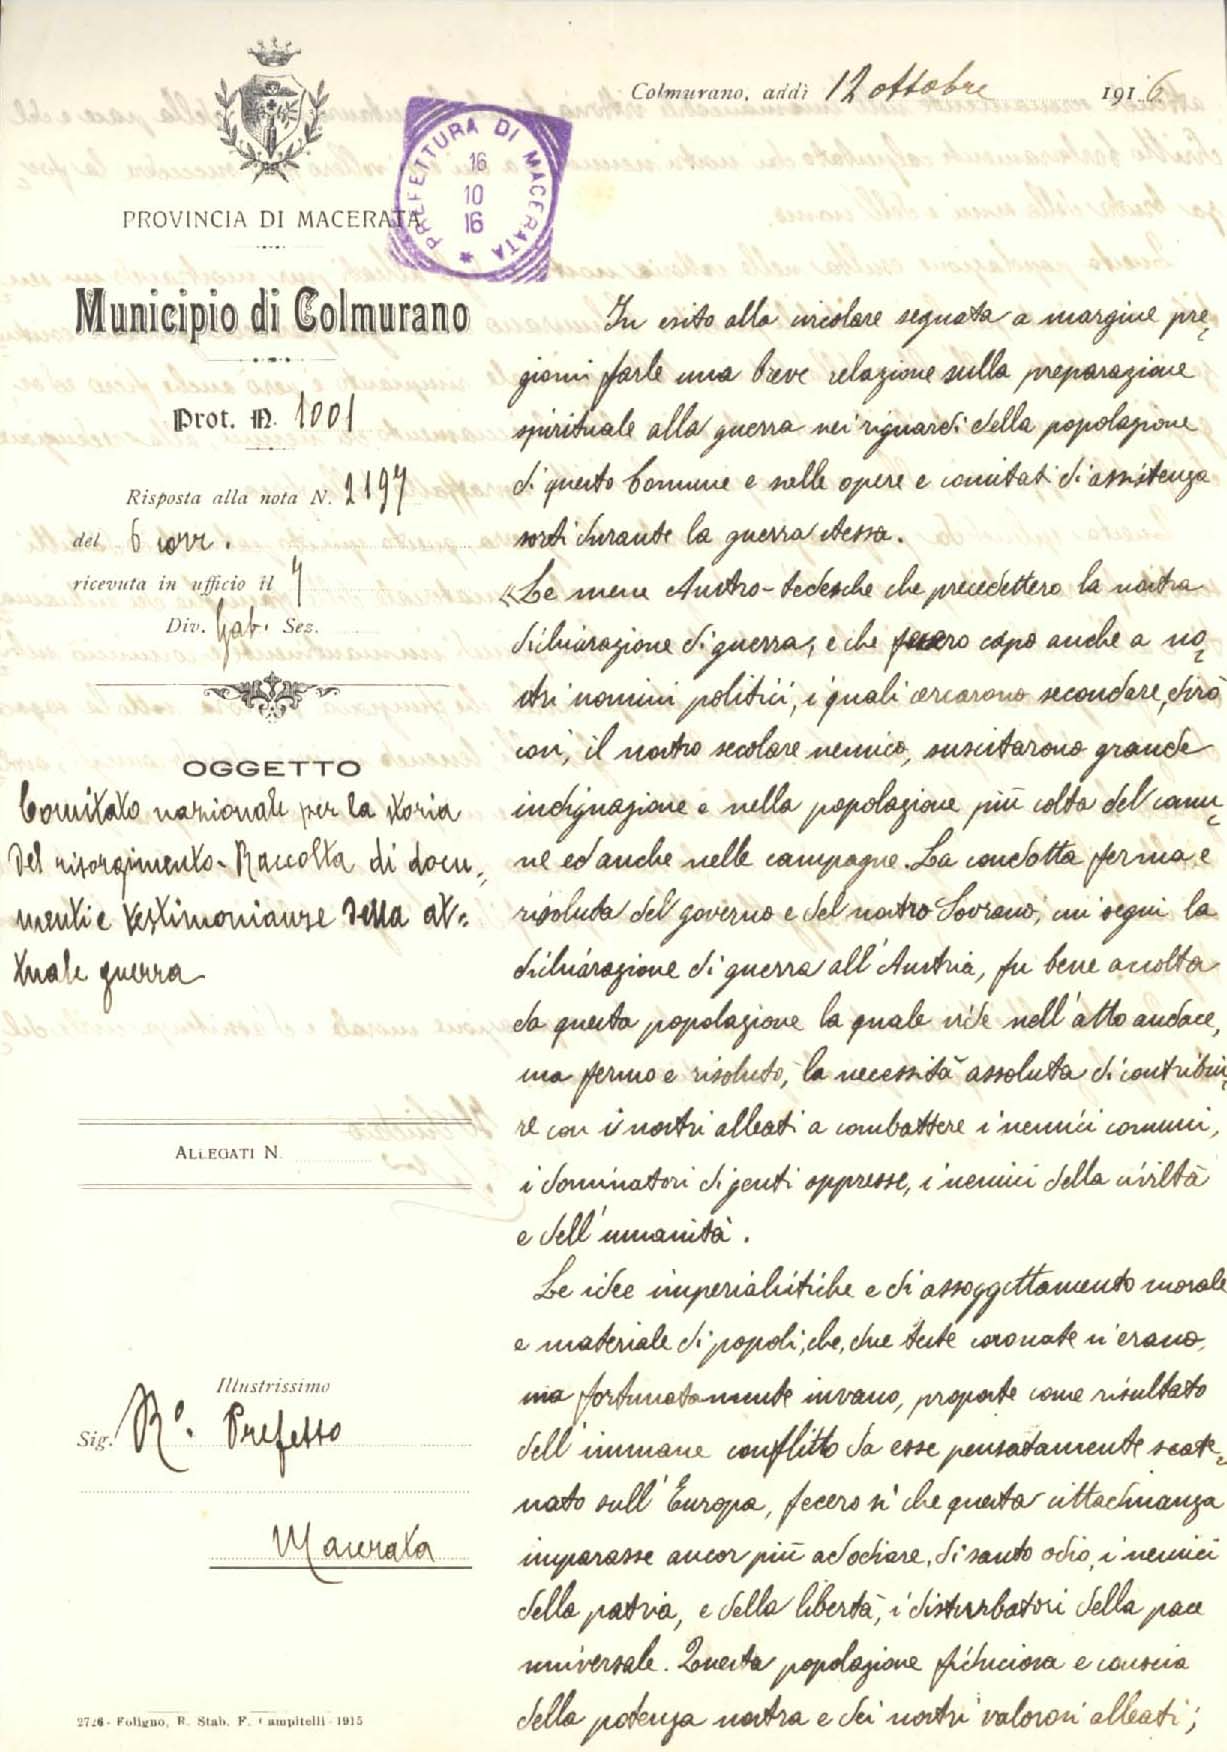 Colmurano, addì 12 ottobre 1916
PREFETTURA DI MACERATA
16
10
16
PROVINCIA DI MACERATA
Municipio di Colmurano
Prot. N. 1001
Risposta alla nota N. 2197
del 6 corr.
ricevuta in ufficio il 7
Div. Gab. Sez.
OGGETTO
Comitato nazionale per la storia
del risorgimento - Raccolta di docu-
menti e testimonianze della at-
tuale guerra
ALLEGATI N.
Illustrissimo
Sig. R°. Prefetto
Macerata
2726 - Foligno, R. Stab. F. Campitelli - 1915
In esito alla circolare segnata a margine pre-
giomi farle una breve relazione sulla preparazione
spirituale alla guerra nei riguardi della popolazione
di questo Comune e sulle opere e comitati di assistenza
sorti durante la guerra stessa.
«Le mene Austro-tedesche che precedettero la nostra
dichiarazione di guerra, e che fecero capo anche a no-
stri uomini politici, i quali cercarono secondare, dirò
così, il nostro secolare nemico, suscitarono grande
indignazione e nella popolazione più colta del comu-
ne ed anche nelle campagne. La condotta ferma e
risoluta del governo e del nostro Sovrano, cui seguì la
dichiarazione di guerra all'Austria, fu bene accolta
da questa popolazione la quale vide nell'atto audace,
ma fermo e risoluto, la necessità assoluta di contribui-
re con i nostri alleati a combattere i nemici comuni,
i dominatori di genti oppresse, i nemici della civiltà
e dell'umanità.
Le idee imperialistiche e di assoggettamento morale
e materiale di popoli, che, due teste coronate si erano,
ma fortunatamente invano, proposte come risultato
dell'immane conflitto da esse pensatamente scate-
nato sull'Europa, fecero sì che questa cittadinanza
imparasse ancor più ad odiare, di santo odio, i nemici
della patria, e della libertà, i disturbatori della pace
universale. Questa popolazione fiduciosa e conscia
della potenza nostra e dei nostri valorosi alleati;